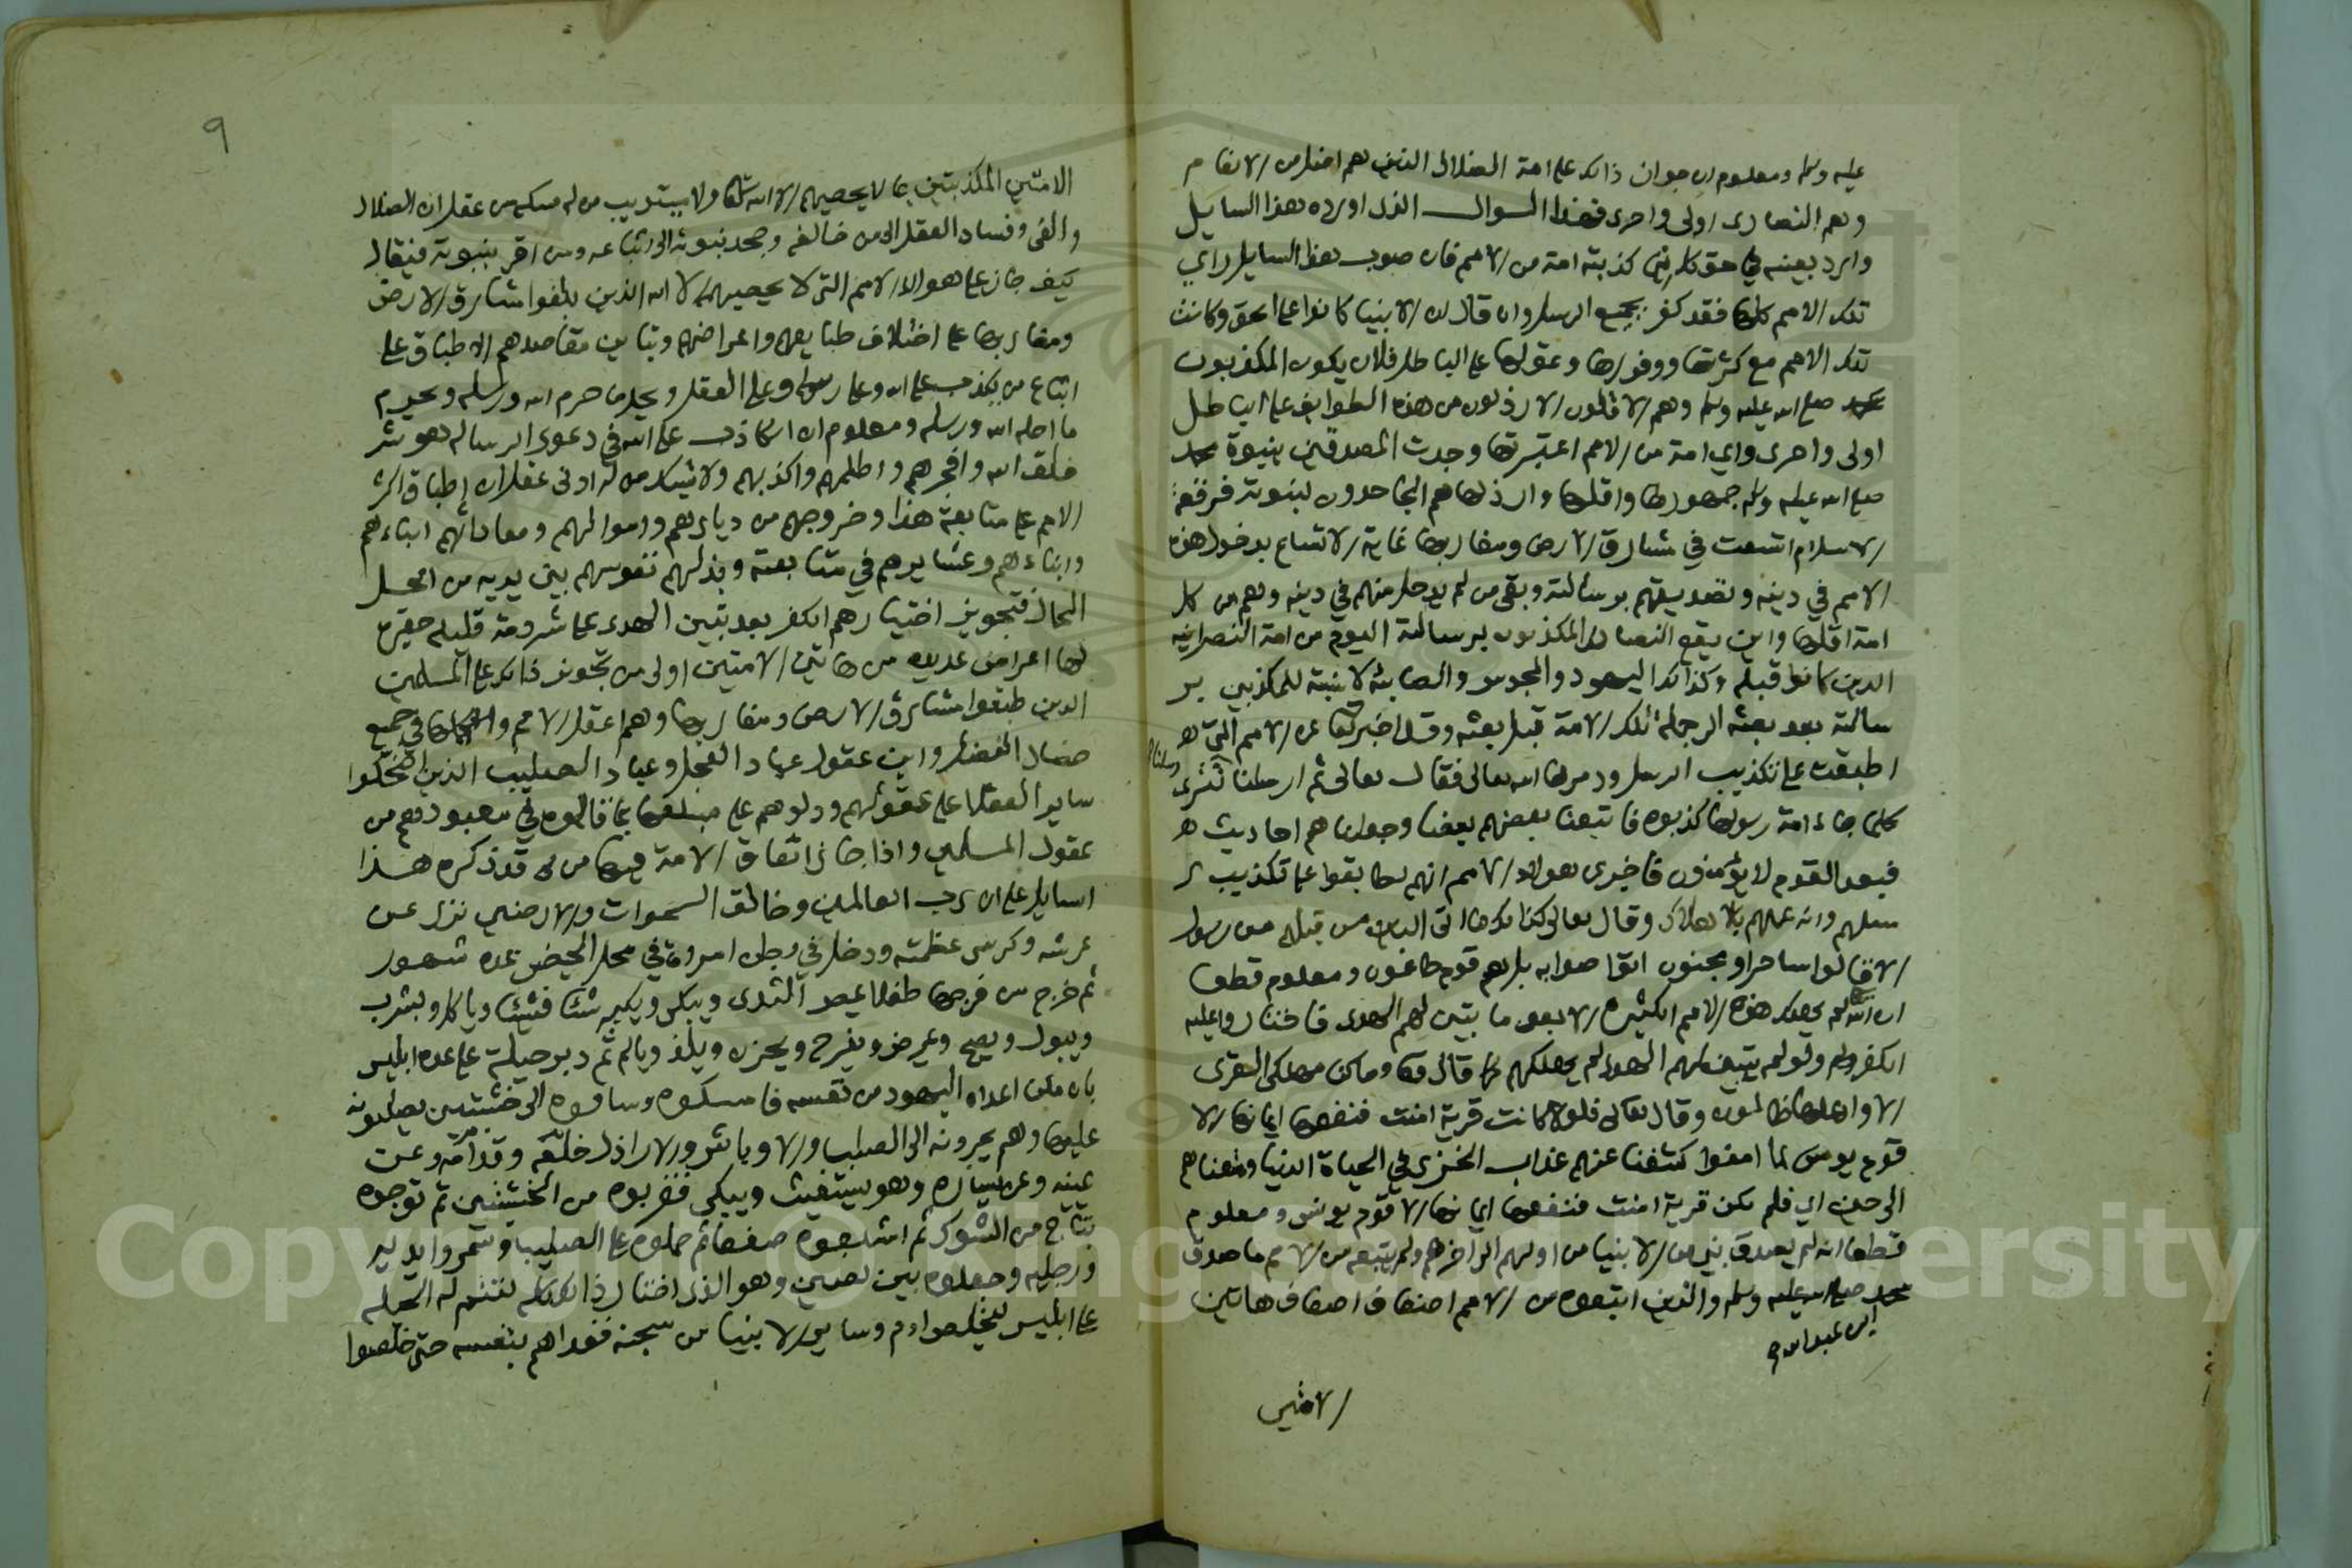 عليه وسلم ومعلوم ان جوان ذلك على امة الضلال الذين هم اضل من الانعام
وهم النصارى اولى واحرى فهذا السوال الذي اورده هذا السايل
وارد بعينه في حق كل نبي كذبته امة من الامم فان صوب هذا السايل راي
تلك الامم كلها فقد كفر بجميع الرسل وان قال ان الانبيا كانوا على الحق وكانت
تلك الامم مع كثرتها ووفورها وعقولها على الباطل فلان يكون المكذبون
بمحمد صلى الله عليه وسلم وهم الاقلون الارذلون من هذه الطوايف على الباطل
اولى واحرى واي امة من الامم اعتبرتها وجدت المصدقين بنبوة محمد
صلى الله عليه وسلم جمهورها واقلها وارذلها هم الجاحدون لنبوته فرقعة
الاسلام اتسعت في مشارق الارض ومغاربها غاية الاتساع بدخول هذه
الامم في دينه وتصديقهم برسالته وبقي من لم يدخل منهم في دينه وهم من كل
امة اقلها واين يقع النصارى المكذبون برسالته اليوم من امة النصرانية
الذين كانوا قبله وكذلك اليهود والمجوس والصابئة لا نسبة للمكذبين بر
سالته بعد بعثه الى جملة تلك الامة قبل بعثه وقد اخبر تعا عن الامم التي
اطبقت على تكذيب الرسل ودمرها الله تعالى فقال تعالى ثم ارسلنا رسلنا تترى
كلما جاء امة رسولها كذبوه فاتبعنا بعضهم بعضا وجعلناهم احاديث
فبعدا لقوم لا يؤمنون فاخبر عن هولاء الامم انهم تطابقوا على تكذيب ر
سلهم وانه عمهم بالاهلاك وقال تعالى كذلك ما اتى الذين من قبلهم من رسول
الا قالوا ساحر او مجنون اتواصوا به بل هم قوم طاغون ومعلوم قطعا
ان الله تعا لم يهلك هذه الامم الكثيرة الا بعد ما تبين لهم الهدى فاختاروا عليه
الكفر ولو لم يتبين لهم الهدى لم يهلكهم كما قال تعا وما كنا مهلكي القرى
الا واهلها ظالمون وقال تعالى فلولا كانت قرية امنت فنفعها ايمانها الا
قوم يونس لما امنوا كشفنا عنهم عذاب الخزي في الحياة الدنيا ومتعناهم
الى حين اي فلم تكن قرية امنت فنفعها ايمانها الا قوم يونس ومعلوم
قطعا انه لم يصدق نبي من الانبيا من اولهم الى اخرهم ولم يتبعه من الامم ما صدق
محمد صلى الله عليه وسلم والذين اتبعوه من الامم اضعاف اضعاف هاتين
ابن عبد الله
الامتين
٩
الامتين المكذبتين بما لا يحصيهم الا الله تعا ولا يستريب من له مسكة من عقل ان الضلال
والغي وفساد العقل الى من خالفه وجحد نبوته الى اتباعه ومن اقر بنبوته فيقال
كيف جاز على هولاء الامم التي لا يحصيهم الا الله الذين بلغوا مشارق الارض
ومغاربها على اختلاف طبايعهم واغراضهم وتباين مقاصدهم الاطباق على
اتباع من يكذب على الله وعلى رسوله وعلى العقل ويحل ما حرم الله ورسله ويحرم
ما احله الله ورسله ومعلوم ان الكاذب على الله في دعوى الرسالة هو شر
خلق الله وافجرهم واظلمهم واكذبهم ولا يشك من له ادنى عقل ان اطباق اكثر
الامم على متابعة هذا وخروجهم من ديارهم واموالهم ومعاداتهم اباءهم
وابناءهم وعشايرهم في متابعته وبذلهم نفوسهم بين يديه من امحل
المحال فتجويز اختيارهم الكفر بعد تبين الهدى على شرذمة قليلة حقيرة
لها اغراض عديدة من هاتين الامتين اولى من تجويز ذلك على المسلمين
الذين طبقوا مشارق الارض ومغاربها وهم اعقل الامم واكملها في جميع
خصال الفضل واين عقول عباد العجل وعباد الصليب الذين اضحكوا
ساير العقلا على عقولهم ودلوهم على مبلغها بما قالوه في معبودهم من
عقول المسلمين واذا جاز اتفاق الامة فيها من قد ذكره هذا
السايل على ان رب العالمين وخالق السموات والارضين نزل عن
عرشه وكرسي عظمته ودخل في بطن امراة في محل الحيض عدة شهور
ثم خرج من فرجها طفلا يمص الثدي ويبكي ويكبر شئا فشيئا وياكل ويشرب
ويبول ويصح ويمرض ويفرح ويحزن ويلذ ويالم ثم دبر حيلة على عدوه ابليس
بان مكن اعداه اليهود من نفسه فامسكوه وساقوه الى خشبتين يصلبونه
عليها وهم يجرونه الى الصلب والاوباش والاراذل خلفه وقدامه وعن
يمينه وعن يساره وهو يستغيث ويبكي فقربوه من الخشبتين ثم توجوه
بتاج من الشوك ثم اشبعوه صفعا ثم حملوه على الصليب وسمروا يديه
ورجليه وجعلوه بين لصين وهو الذي اختار ذلك كله لتتم له الحيلة
على ابليس ليخلص ادم وساير الانبيا من سجنه ففداهم بنفسه حتى خلصوا
Copyright © King Saud University